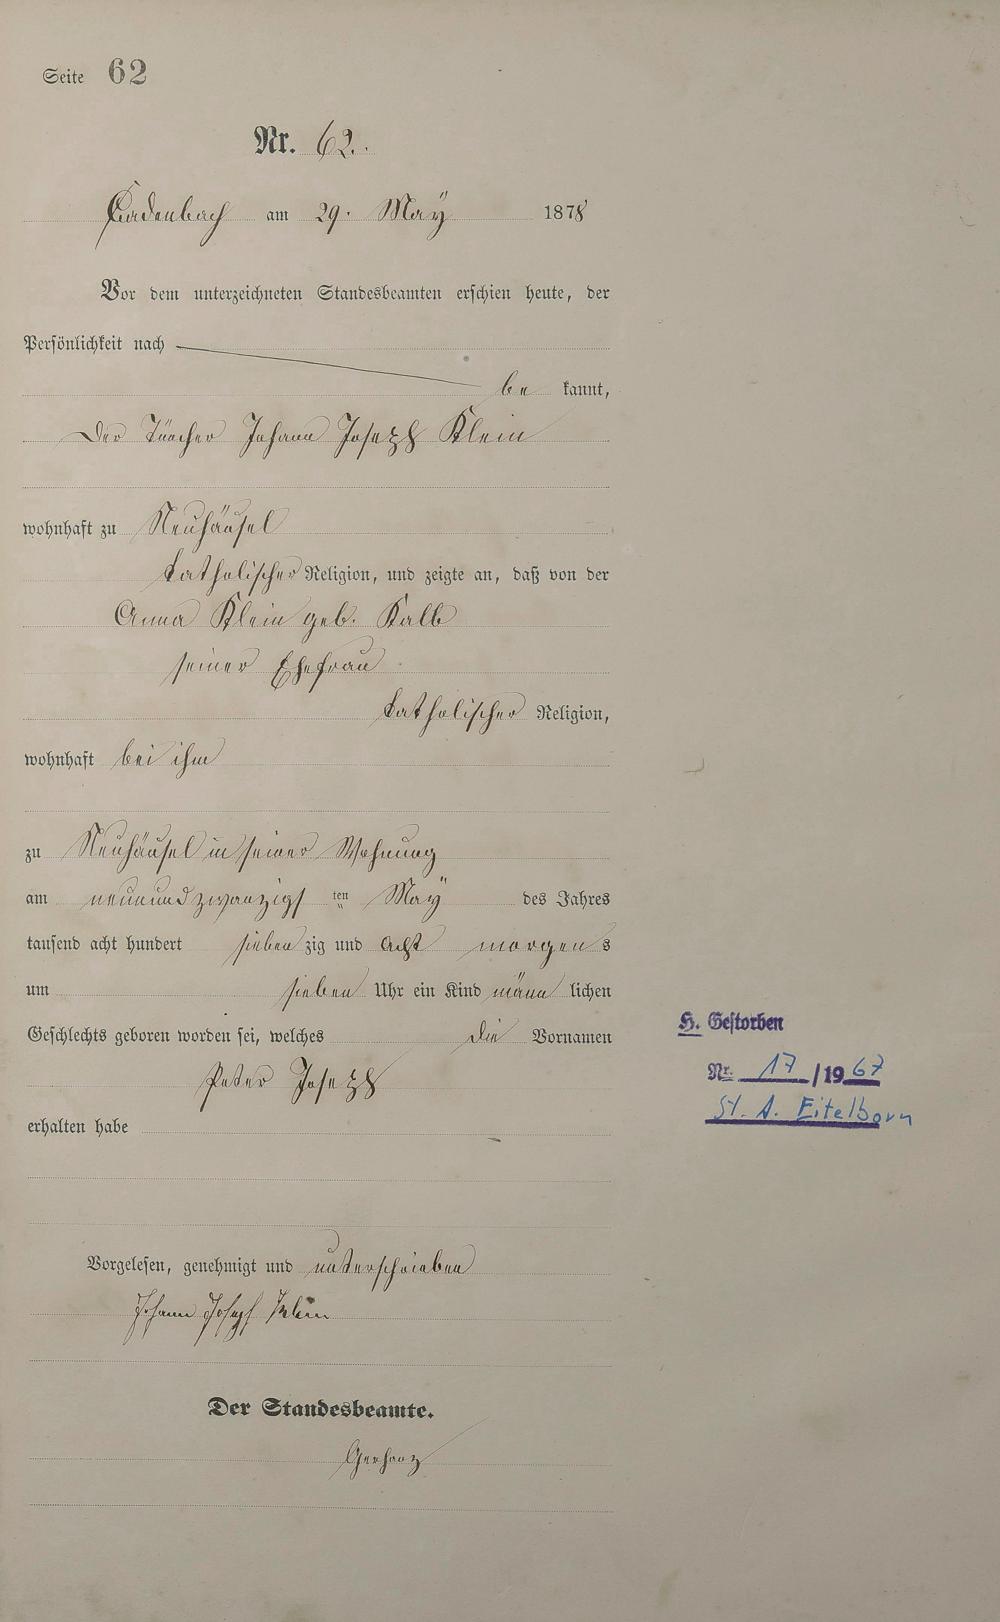 Seite 62
Nr. 62.
Cadenbach am 29. Maÿ 1878
Vor dem unterzeichneten Standesbeamten erschien heute, der
Persönlichkeit nach
be kannt,
der Tüncher Johann Joseph Klein
wohnhaft zu Neuhäusel
katholischer Religion, und zeigte an, daß von der
Anna Klein geb. Kalb
seiner Ehefrau
katholischer Religion,
wohnhaft bei ihm
zu Neuhäusel in seiner Wohnung
am neunundzwanzigs ten Maÿ des Jahres
tausend acht hundert sieben zig und acht morgen s
um sieben Uhr ein Kind männ lichen
Geschlechts geboren worden sei, welches die Vornamen
Peter Joseph
erhalten habe
H. Gestorben
Nr. 17/1967
St. A. Eitelborn
Vorgelesen, genehmigt und unterschrieben
Johann Joseph Klein
Der Standesbeamte.
Gerharz